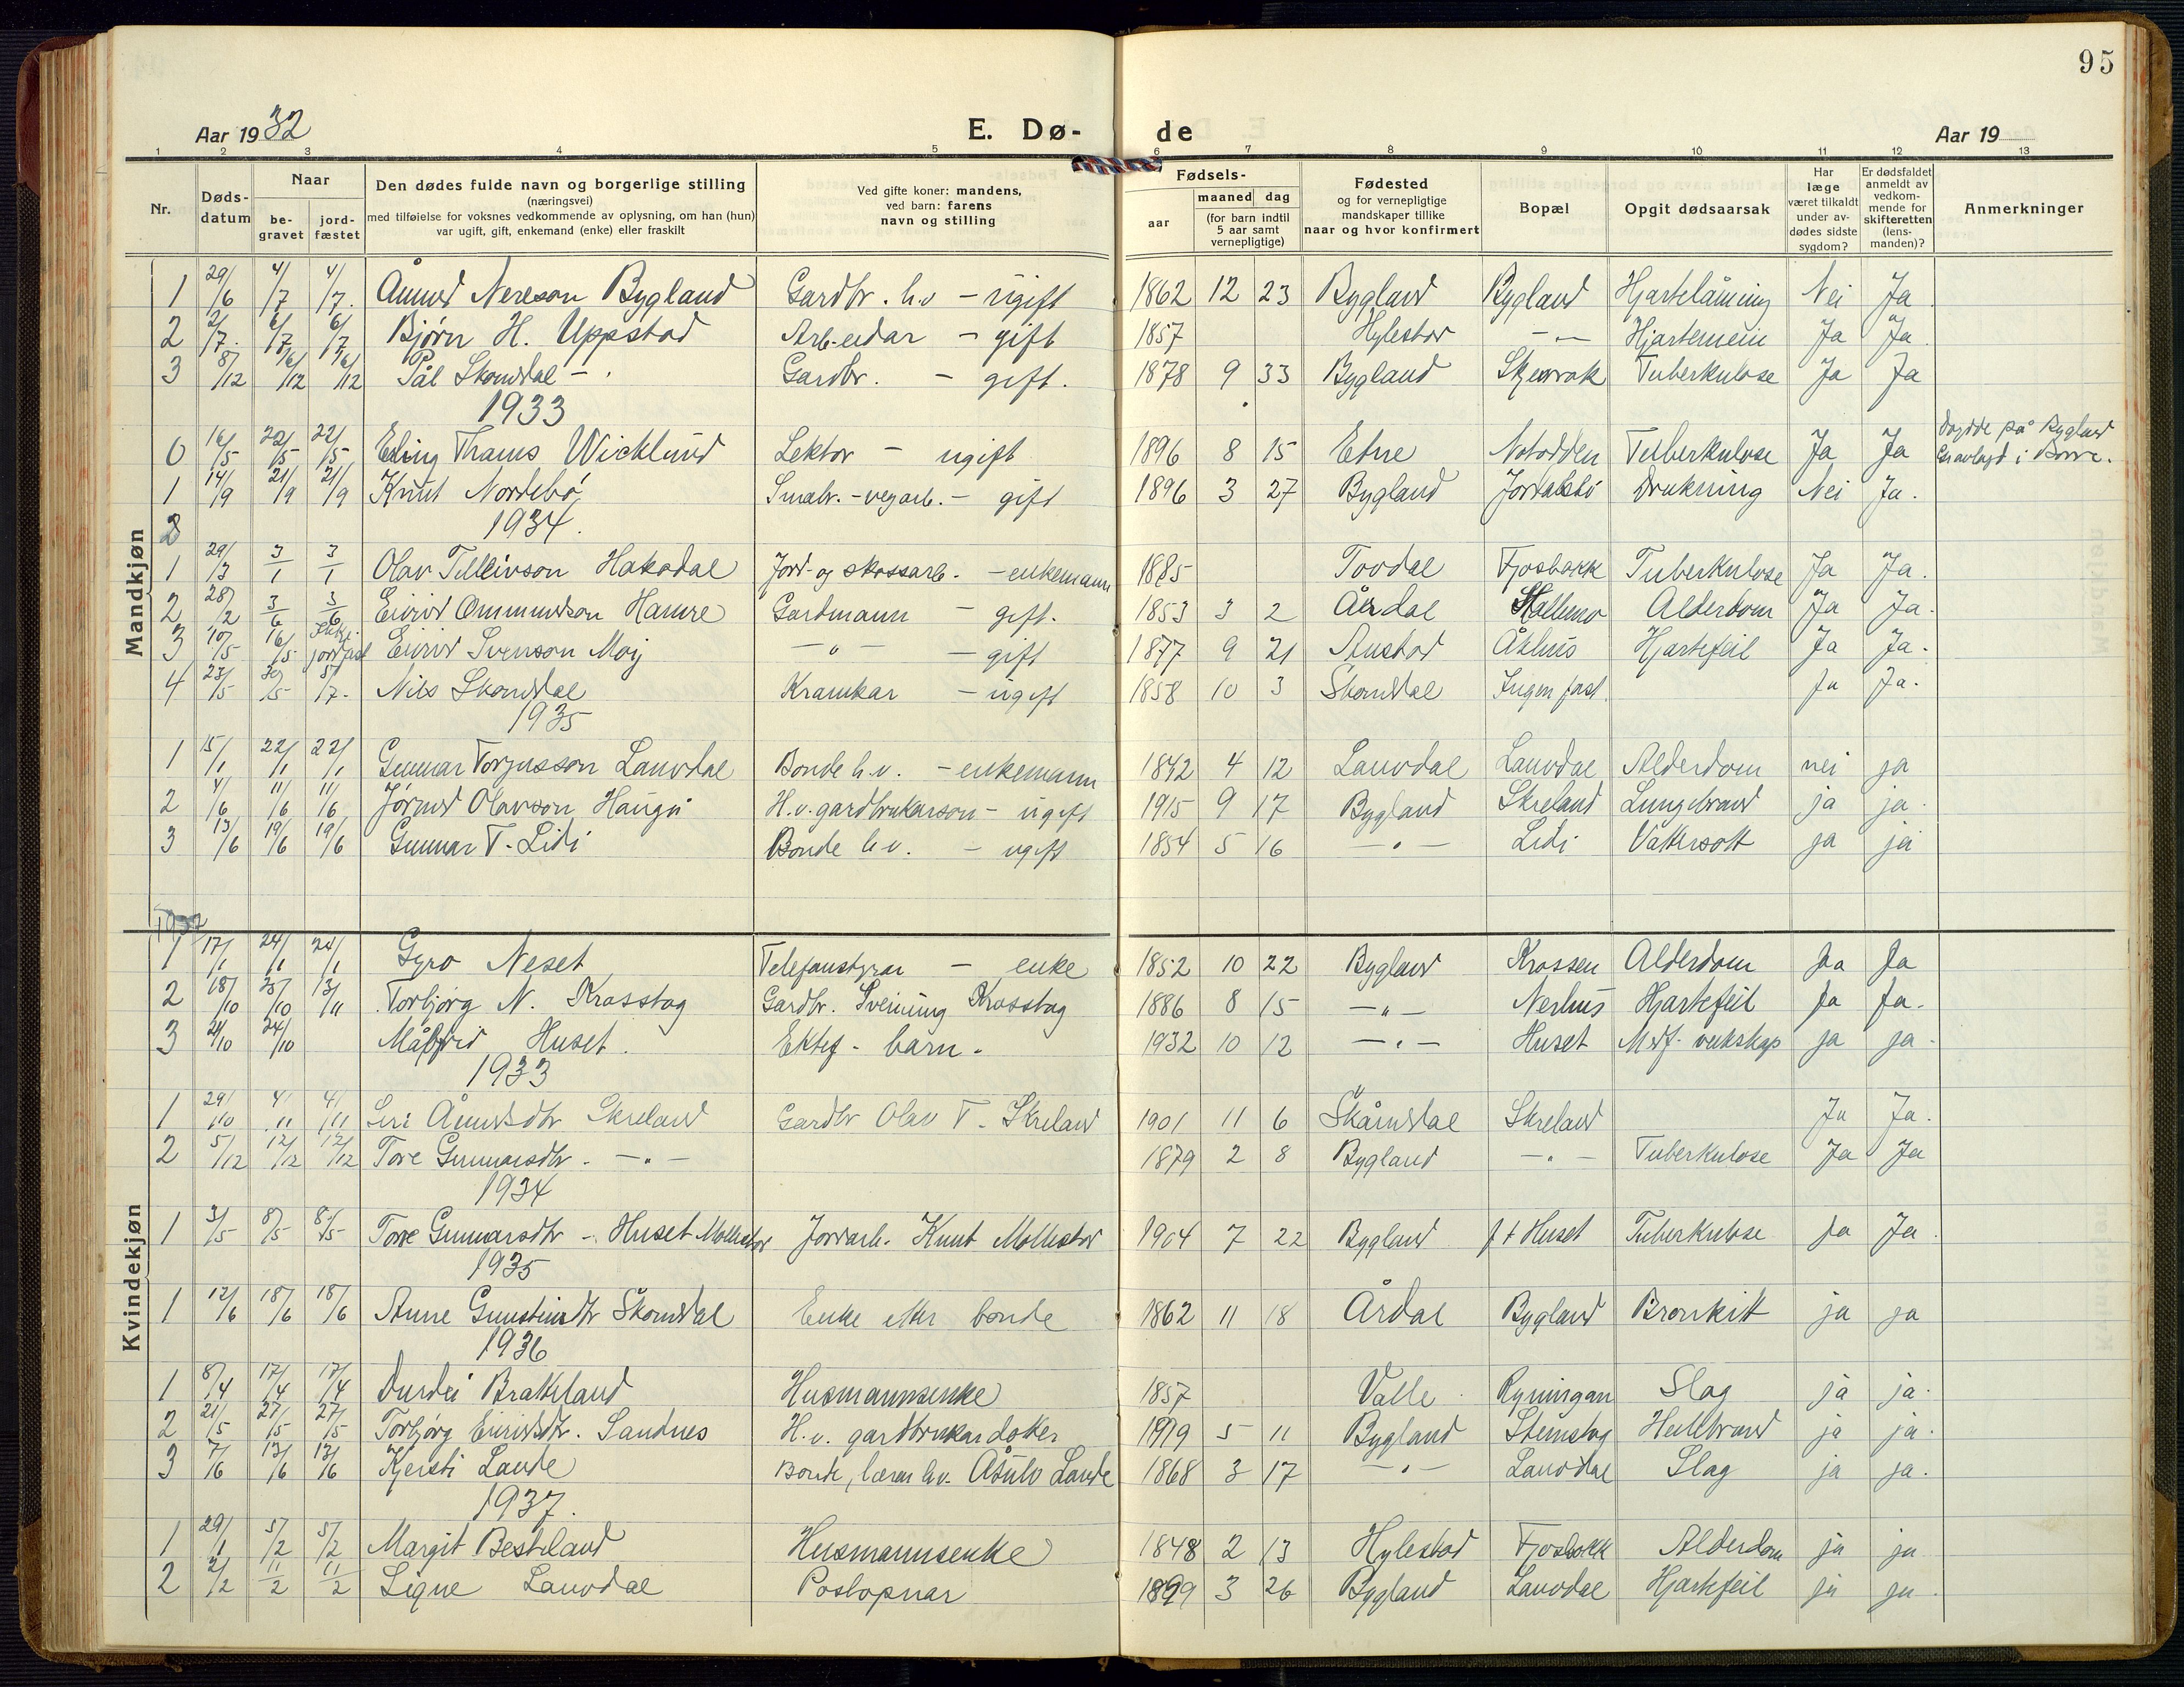 95
Aar 1932 E. Dø- de Aar 19
1 2 3 4 5 6 7 8 9 10 11 12 13
Nr. Døds-datum Naar be-gravet jord-fæstet Den dødes fulde navn og borgerlige stilling (næringsvei) med tilføielse for voksnes vedkommende av oplysning, om han (hun) var ugift, gift, enkemand (enke) eller fraskilt Ved gifte koner: mandens, ved barn: farens navn og stilling Fødsels- aar maaned dag (for barn indtil 5 aar samt vernepligtige) Fødested og for vernepligtige mandskaper tillike naar og hvor konfirmert Bopæl Opgit dødsaarsak Har læge været tilkaldt under av-dødes sidste sygdom? Er dødsfaldet anmeldt av vedkom-mende for skifteretten (lens-manden)? Anmerkninger
Mandkjøn
1 29/6 4/7 4/7. Åmund Nereson Bygland Gardbr. h.v - ugift 1862 12 23 Bygland Bygland Hjartelåming Nei Ja
2 2/7. 6/7 6/7 Bjørn H. Uppstad Arb-eidar - gift 1857 Hylestad - " - Hjartemein Ja Ja.
3 8/12 16/12 16/12 Pål Skomdal - . Gardbr. - gift. 1878 9 33 Bygland Tuberkulose Ja Ja
1933
0 16/5 22/5 22/5 Erling Thams Wicklund Lektor - ugift 1896 8 15 Etne Notodden Tuberkulose Ja Ja Døydde på Bygland Gravlagd i Borre.
1 14/9 21/9 21/9 Knut Nordebø Smabr. - vegarb. - gift 1896 3 27 Bygland Drukning Nei Ja.
2 1934.
1 29/3 3/1 3/1 Olav Tellevson Hakadal Jord- og skogsarb. - enkemann 1885 Tovdal Fjosbakk Tuberkulose Ja Ja.
2 28/2 3/6 3/6 Eivind Ommundson Hamre Gardmann - gift. 1853 3 2 Årdal Alderdom Ja Ja.
3 10/5 16/5 Ikkje jordfest Eivind Svenson Moi - " - - gift 1877 9 21 Austad Åkhus Hjartefeil Ja Ja.
4 23/5 30/5 5/7. Nils Skomdal Kramkar - ugift 1858 10 3 Skomdal Ingen fast. Ja Ja.
1935
1 15/1 22/1 22/1 Gunnar Torjusson Lauvdal Bonde h.v. - enkemann 1842 4 12 Lauvdal Lauvdal Alderdom nei ja
2 4/6 11/6 11/6 Jørund Olavson Haugå H.v. gardbrukarson - ugift 1915 9 17 Bygland Skreland Lungebrand ja ja.
3 13/6 19/6 19/6 Gunnar T. Lidi Bonde h.v. - ugift 1854 5 16 - " - Lidi Vattersott ja ja
Kvindekjøn
1932
1 17/1 24/1 24/1 Gyro Neset Telefonstyrar - enke 1852 10 22 Bygland Krossen Alderdom Ja Ja
2 18/10 25/10 13/11 Torbjørg N. Krosstog Gardbr. Sveinung Krosstog 1886 8 15 - " - Nerhus Hjartefeil Ja Ja.
3 21/10 24/10 Målfrid Huset. Ektef. barn. 1932 10 12 - " - Huset Medf. veikskap ja ja.
1933
1 29/10 4/11 4/11 Siri Åmundsdtr Skreland Gardbr Olav T. Skreland 1901 11 6 Skåmdal Skreland Ja Ja.
2 5/12 12/12 12/12 Tore Gunnarsdtr. - " - 1879 2 8 Bygland - " - Tuberkulose Ja Ja
1934
1 3/5 8/5 8/5 Tore Gunnarsdtr - Huset Mollestad Jordarb. Knut Mollestad 1904 7 22 Bygland Huset Tuberkulose Ja Ja.
1935
1 12/6 18/6 18/6 Anne Gunsteindtr Skomdal Enke etter bonde 1862 11 18 Årdal Bygland Bronkitt ja ja
1936
1 8/4 17/4 17/4 Durdei Bratteland Husmannsenke 1857 Valle Ryningan Slag ja ja.
2 21/5 27/5 27/5 Torbjørg Eirivsdtr. Sandnes H.v. gardbrukardotter 1919 5 11 Bygland ja ja.
3 7/6 13/6 13/6 Kjersti Lande Bonde, lærar h.v. Åsulv Lande 1868 3 17 - " - Lauvdal Slag ja ja.
1937.
1 29/1 5/2 5/2 Margit Besteland Husmannsenke 1848 2 13 Hylestad Fjosbakk Alderdom ja ja
2 2/2 11/2 11/2 Signe Lauvdal Postopnar 1899 3 26 Bygland Lauvdal Hjartefeil ja ja.